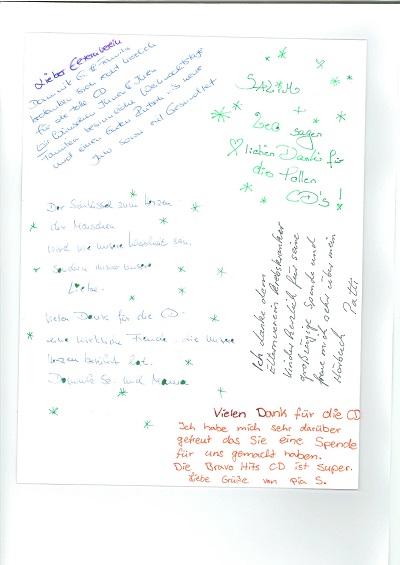 Lieber Elternverein
Dominik G. & Familie
bedanken sich recht herzlich
für die tolle CD
Wir wünschen Ihnen & Ihren
Familien besinnliche Weihnachtstage
und einen Guten Rutsch ins neue
Jahr sowie viel Gesundheit
SALIM
Leo sagen
lieben Dank für
die tollen
CD's!
Der Schlüssel zum Herzen
der Menschen
wird nie unsere Klugheit sein,
sondern immer unsere
Liebe.
Vielen Dank für die CD.
eine wirkliche Freude, die unsere
Herzen berührt hat.
Dominik Se. und Mama
Ich danke dem
Elternverein krebskranker
Kinder herzlich für seine
großzügige Spende und
freue mich sehr über mein
Hörbuch
Patti
Vielen Dank für die CD
Ich habe mich sehr darüber
gefreut das Sie eine Spende
für uns gemacht haben.
Die Bravo Hits CD ist super.
Liebe Grüße von Pia S.